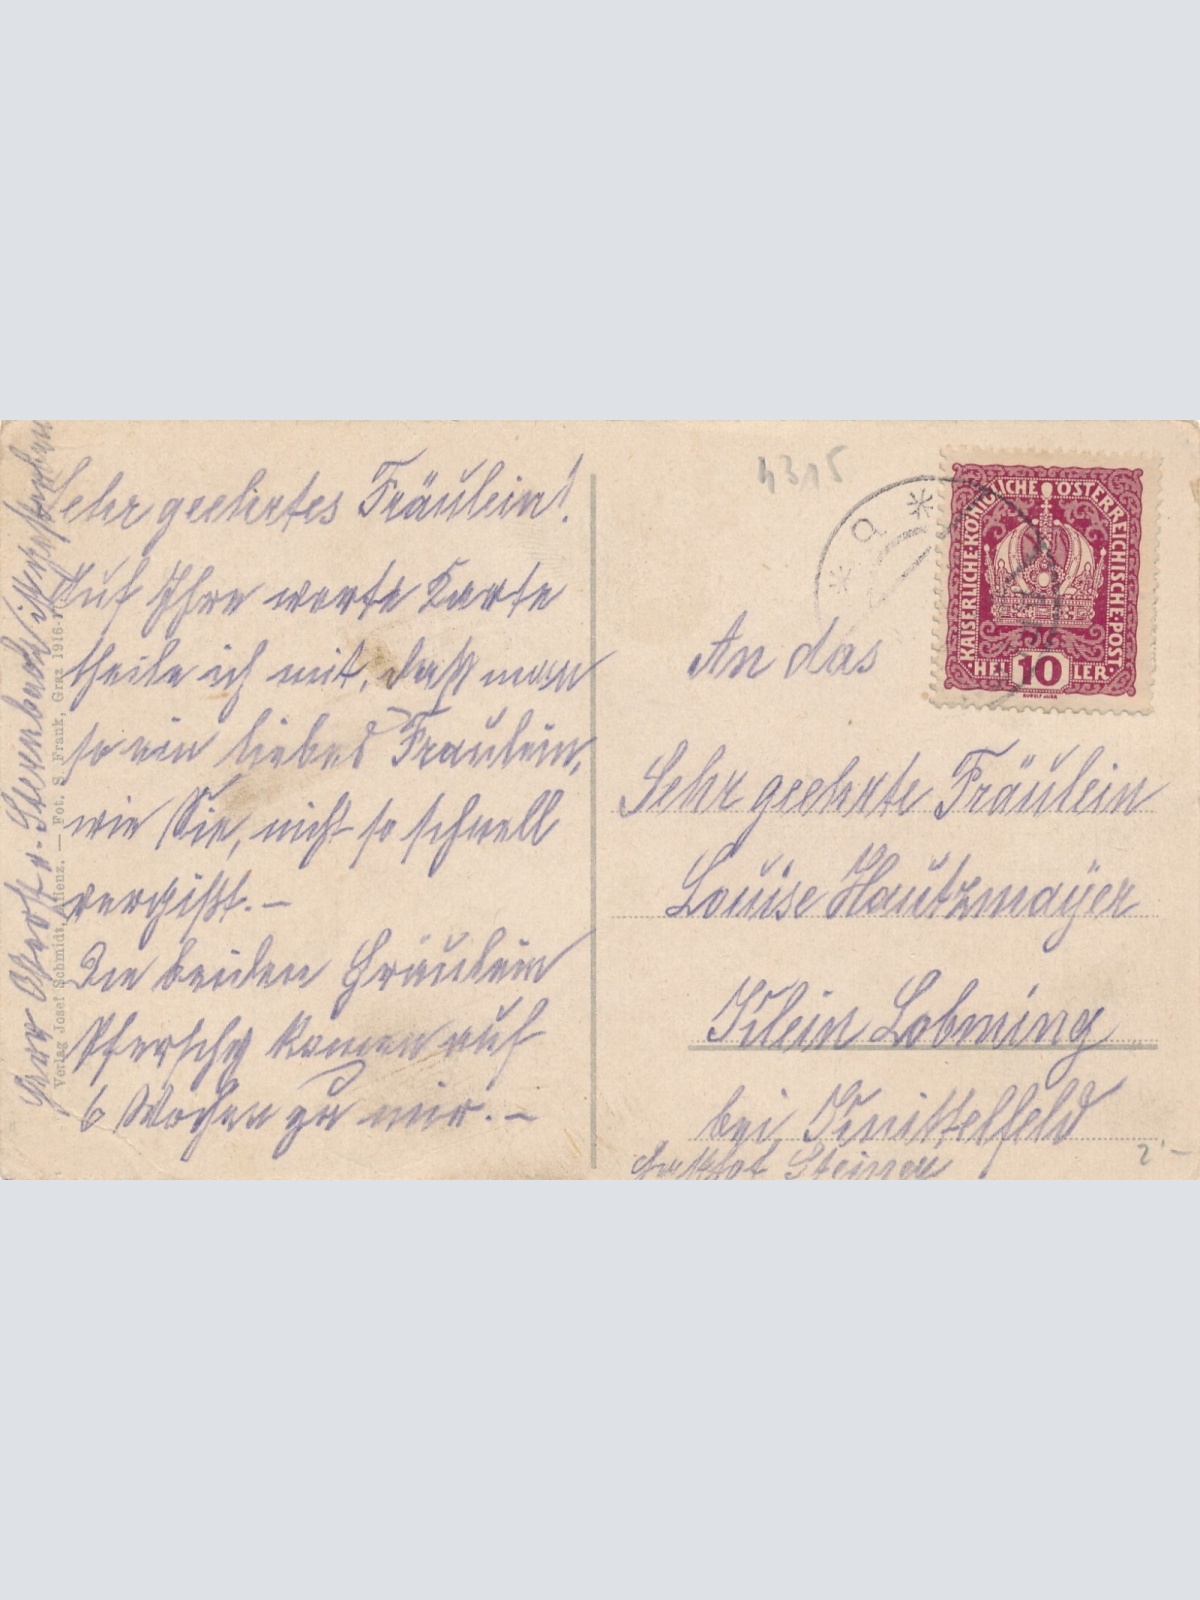 Sehr geehrtes Fräulein!
Auf Ihre werte Karte
theile ich mit, daß man
so ein liebes Fräulein,
wie Sie, nicht so schnell
vergißt.—
Die beiden Fräulein
Pferschy komen auf
6 Wochen zu mir.—
Herr v. Sternbach ist gestorben
Verlag Josef Schmidt, Aflenz. — Fot. S. Frank, Graz 1916-
4315
KAISERLICHE·KÖNIGLICHE ÖSTERREICHISCHE·POST·
HELLER
10
a
An das
Sehr geehrte Fräulein
Louise Hautzmayer
Klein Lobming
bei Knittelfeld
Gasthof Steirer
2'-